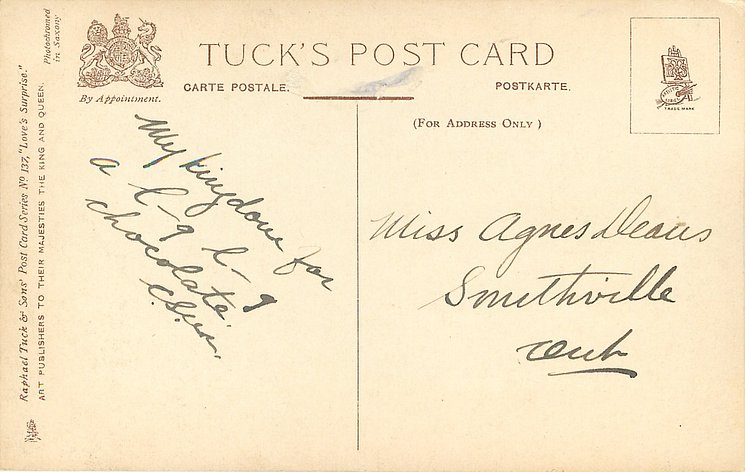 TUCK'S POST CARD
CARTE POSTALE.
POSTKARTE.
By Appointment.
(FOR ADDRESS ONLY)
TRADE MARK
Photochromed
in Saxony
Raphael Tuck & Sons' Post Card Series Nº 137, "Love's Surprise."
ART PUBLISHERS TO THEIR MAJESTIES THE KING AND QUEEN.
My kingdom for
a l-g l-g
chocolate.
Miss Agnes Deans
Smithville
Ont